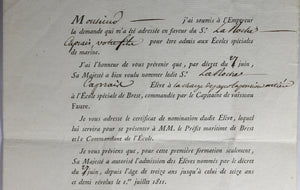 Monsieur j'ai soumis à l'Empereur
la demande qui m'a été adressée en faveur du Sr. La Roche
Caprais, votre fils pour être admis aux Écoles spéciales
de marine.
J'ai l'honneur de vous prévenir que, par décret du 27 juin,
Sa Majesté a bien voulu nommer ledit Sr. La Roche
Caprais Élève à la charge de payer la pension entière
à l'École spéciale de Brest, commandée par le Capitaine de vaisseau
Faure.
Je vous adresse le certificat de nomination dudit Élève, lequel
lui servira pour se présenter à MM. le Préfet maritime de Brest
et le Commandant de l'École.
Je vous préviens que, pour cette première formation seulement,
Sa Majesté a autorisé l'admission des Élèves nommés par le décret
du 27 juin, depuis l'âge de treize ans jusqu'à celui de seize
ans et demi révolus le 1er juillet 1811.